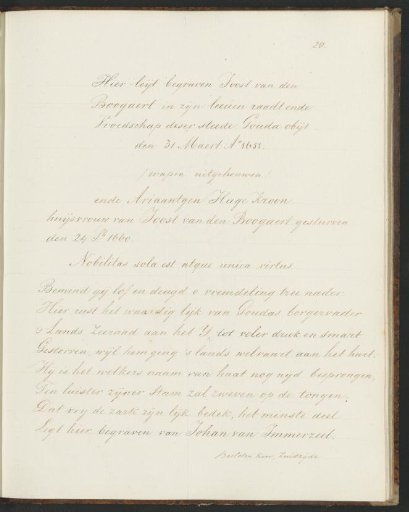 20.
Hier leijt begraven Joost van den
Boogaert in zijn leeven raadt ende
Vroedschap deser steede Gouda obijt
den 31 Maert Aº 1651.
(wapen uitgehouwen)
ende Ariaantgen Huge Kroon
huijsvrouw van Joost van den Boogaert gesturven
den 24 1660.
Nobilitas sola est atque unica virtus
Bemind gij lof en deugd o vremdeling tree nader
Hier rust het waardig lijk van Goudas borgervader
's Lands Zeeraad aan het Y, tot veler druk en smart
Gestorven, wijl hem ging 's lands welvaart aan het hart.
Hy is het welkers naam van haat nog nijd besprongen,
Ten luister zijner Stam zal zweven op de tongen,
Dat vrij de zark zijn lijk bedek, het minste deel
Ligt hier begraven van Johan van Immerzeel.
Zuidzijde